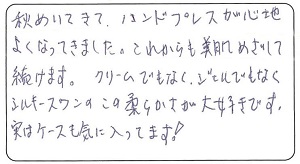 秋めいてきて、ハンドプレスが心地
よくなってきました。これからも美肌めざして
続けます。クリームでもなく、ジェルでもなく
シルキースワンのこの柔らかさが大好きです。
実はケースも気に入ってます!